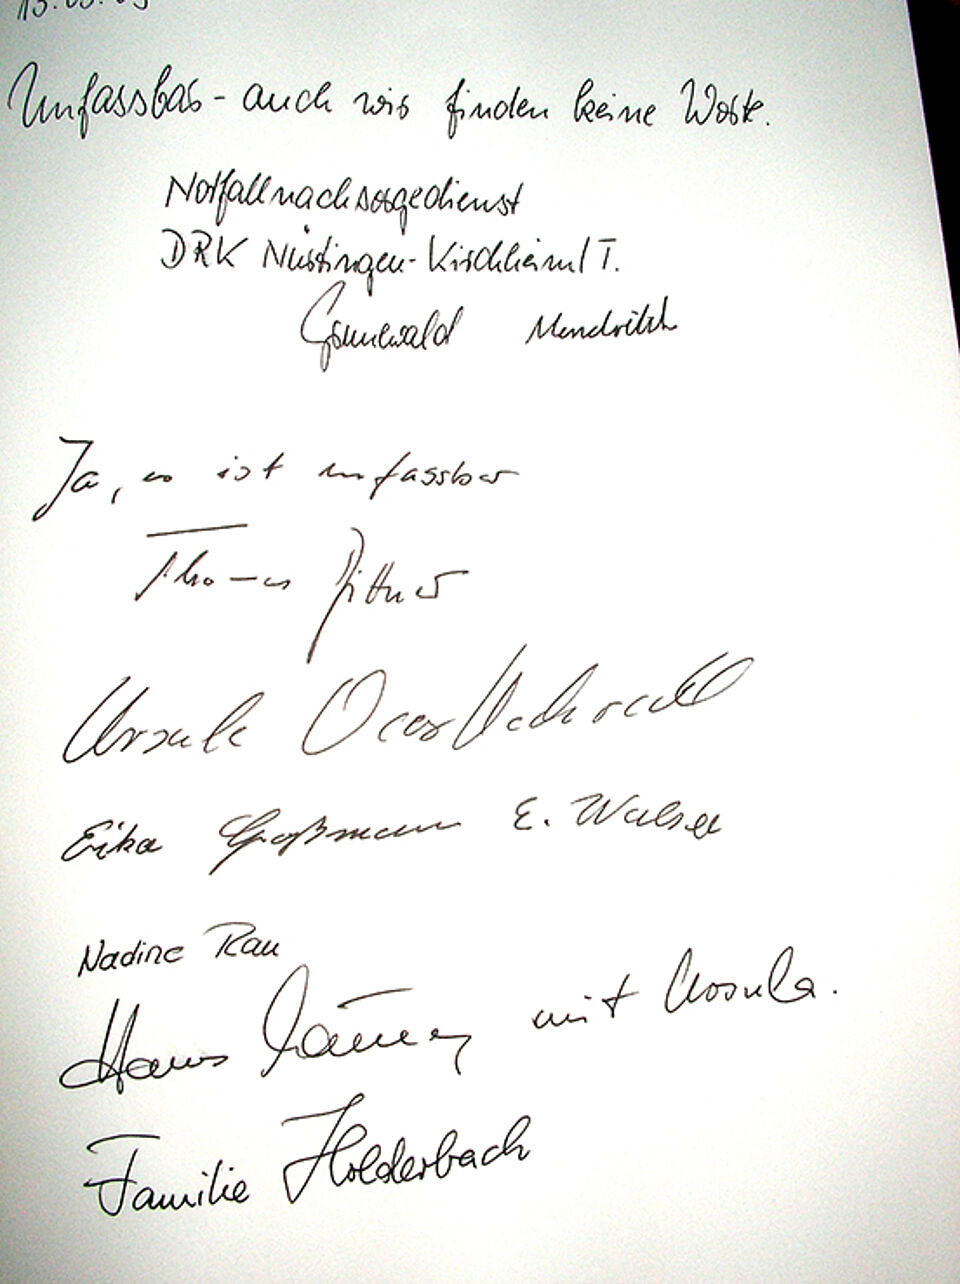 13.03.09
Unfassbar - auch wir finden keine Worte.
Notfallnachsorgedienst
DRK Nürtingen-Kirchheim/T.
Grunewald
Ja, es ist unfassbar
Thomas Bittner
Ursula
Erika Großmann E. Walser
Nadine Rau
Hans mit Ursula.
Familie Holderbach